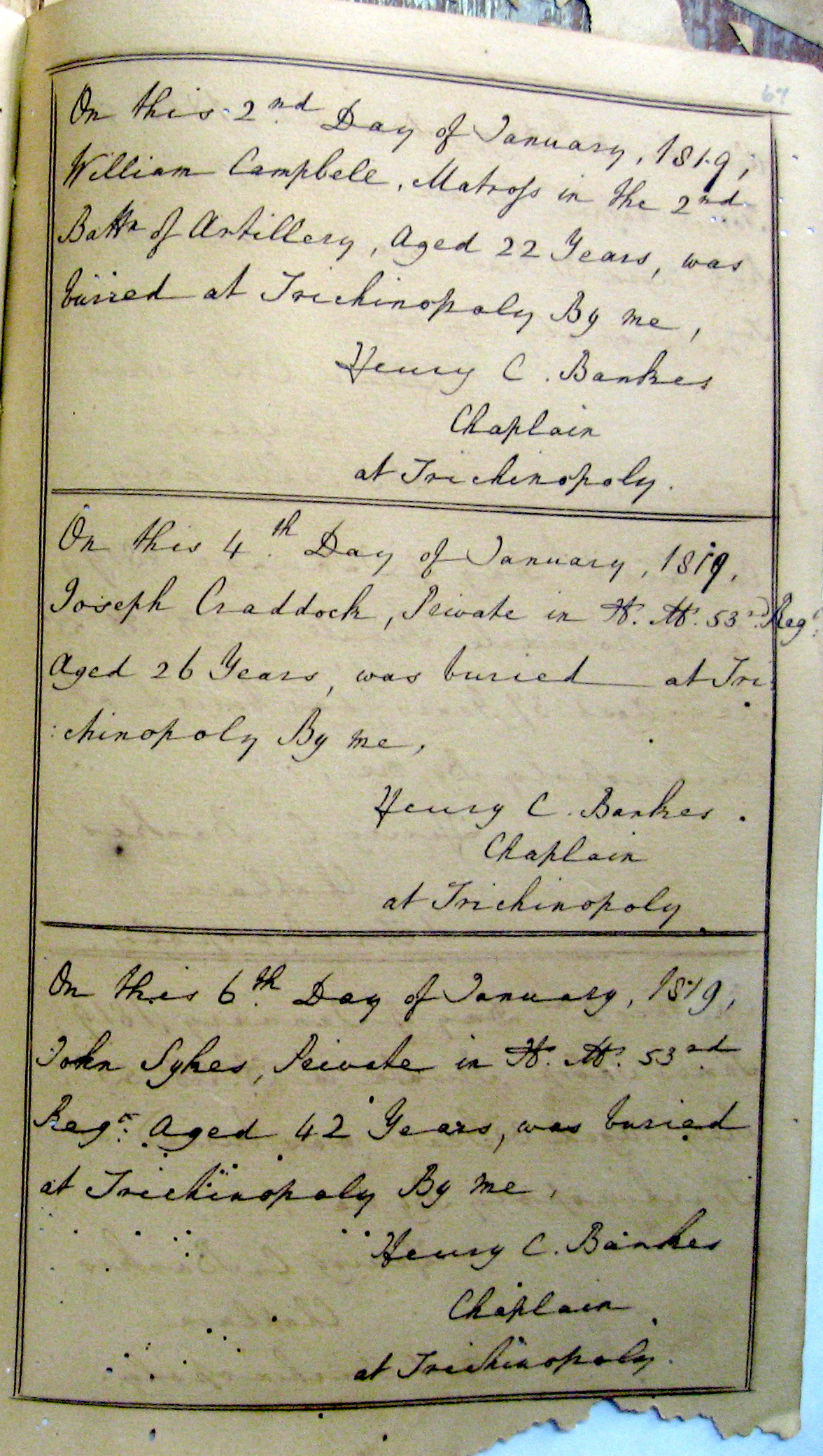 64
On this 2nd Day of January, 1819,
William Campbell, Matross in the 2nd
Battn of Artillery, Aged 22 Years, was
buried at Trichinopoly By me,
Henry C. Bankes
Chaplain
at Trichinopoly.
On this 4th Day of January, 1819,
Joseph Craddock, Private in H. M. 53rd Regt
Aged 26 Years, was buried at Tri
:chinopoly By me,
Henry C. Bankes.
Chaplain
at Trichinopoly
On this 6th Day of January, 1819,
John Sykes, Private in H. M. 53rd
Regt Aged 42 Years, was buried
at Trichinopoly By me,
Henry C. Bankes
Chaplain
at Trichinopoly.